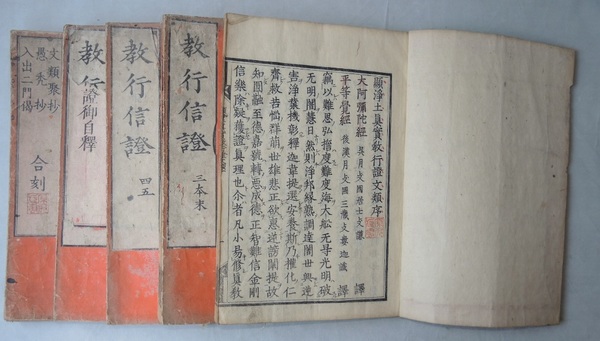 顯淨土真實教行證文類序
大阿彌陀經 吳月支國居士支謙譯
平等覺經 後漢月支國三藏支婁迦讖 譯
竊以難思弘誓度難度海大船无㝵光明破
无明闇慧日然則淨邦緣熟調達闍世興逆
害淨業機彰釋迦韋提選安養斯乃權化仁
齊救苦惱群萌世雄悲正欲惠逆謗闡提故
知圓融至德嘉號轉惡成德正智難信金剛
信樂除疑獲證真理也尒者凡小易修真教
教行信證
三本末
教行信證
四五
教行證御自釋
文類聚抄
愚禿抄
入出二門偈
合刻